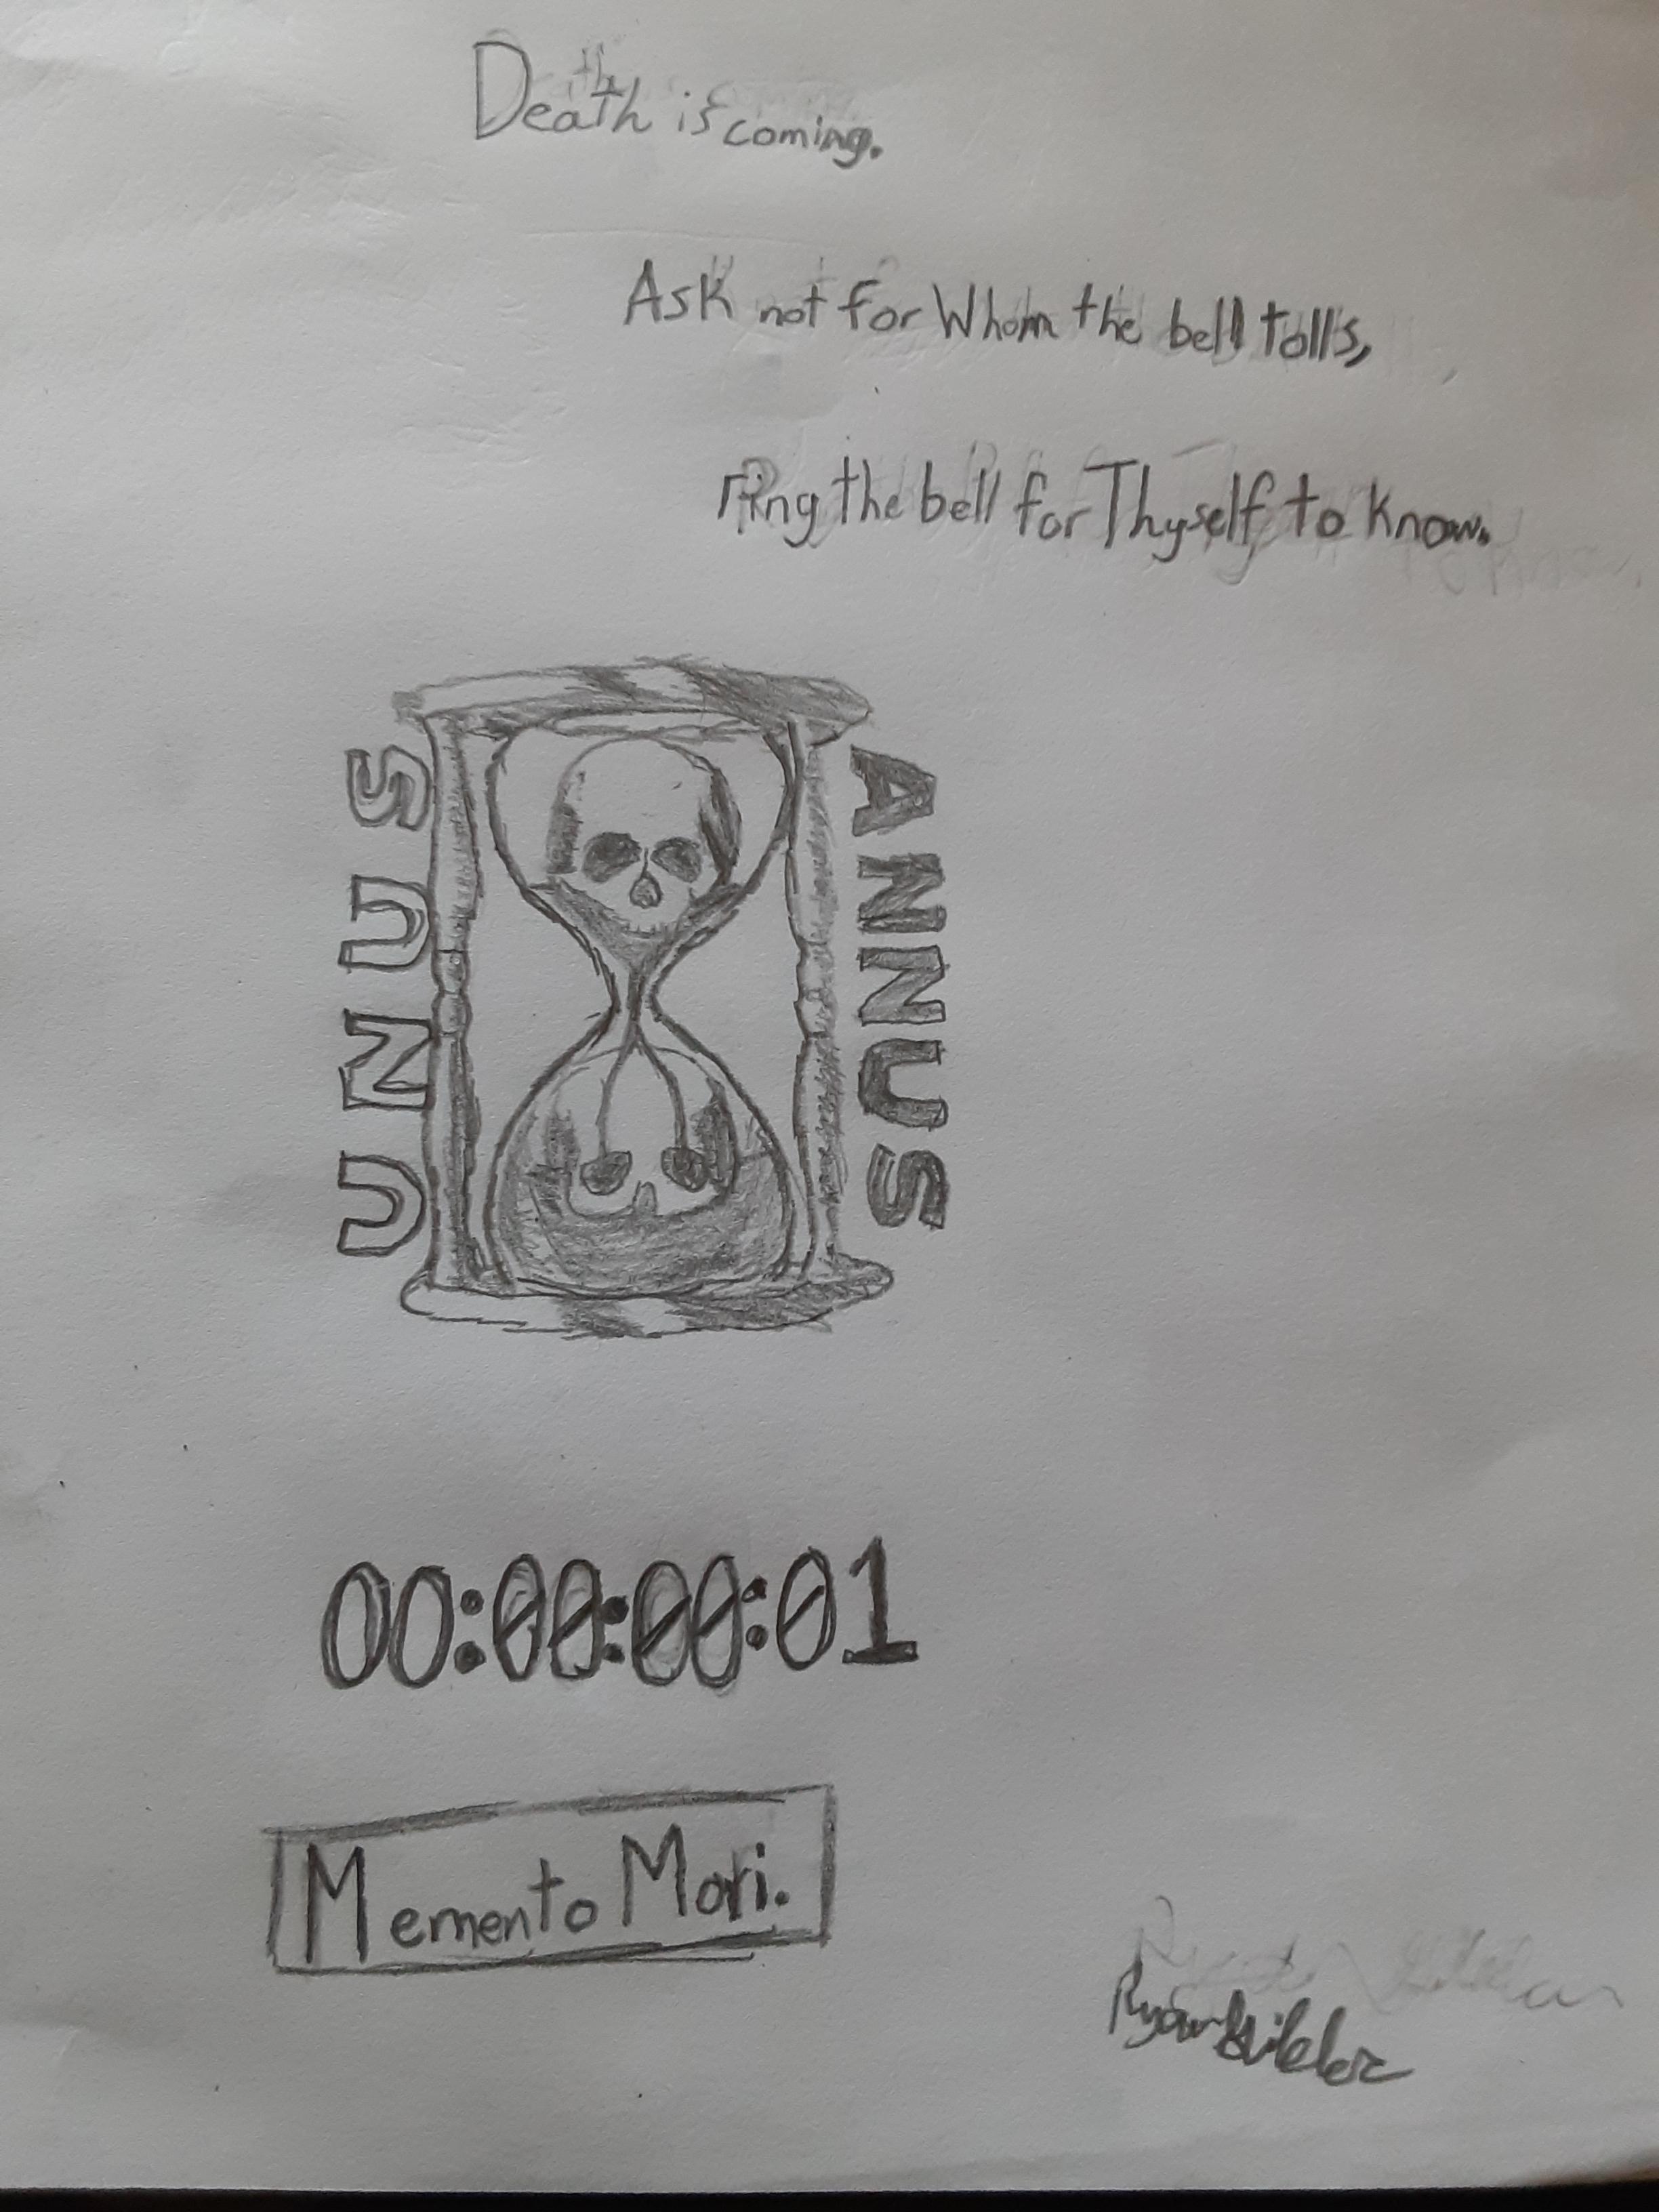 Death is coming.
Ask not for Whom the bell tolls,
ring the bell for Thyself to know.
UNUS
ANNUS
00:00:00:01
Memento Mori.
Ryan